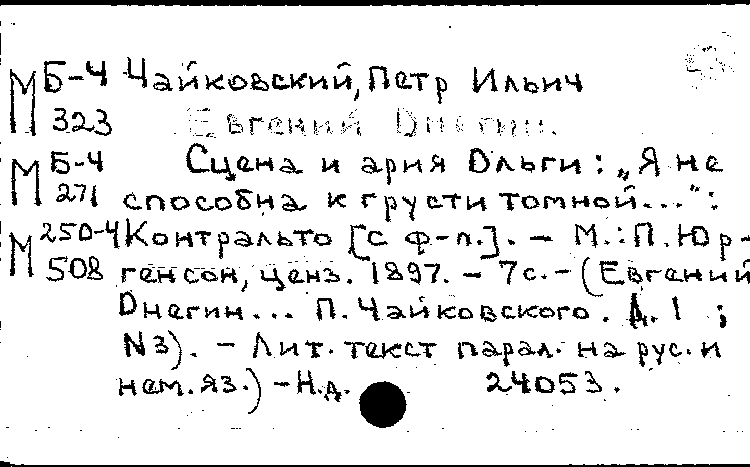 М Б-4 Чайковский, Петр Ильич
323 Евгений Онегин.
М Б-4 Сцена и ария Ольги: „Я не
271 способна к грусти томной...":
М 250-4 Контральто [с ф-п.]. – М.: П. Юр-
508 генсон, ценз. 1897. – 7с. – (Евгений
Онегин... П. Чайковского. Д. 1 ;
N3). – Лит. текст парал. на рус. и
нем. яз.) – Н.д. 24053.